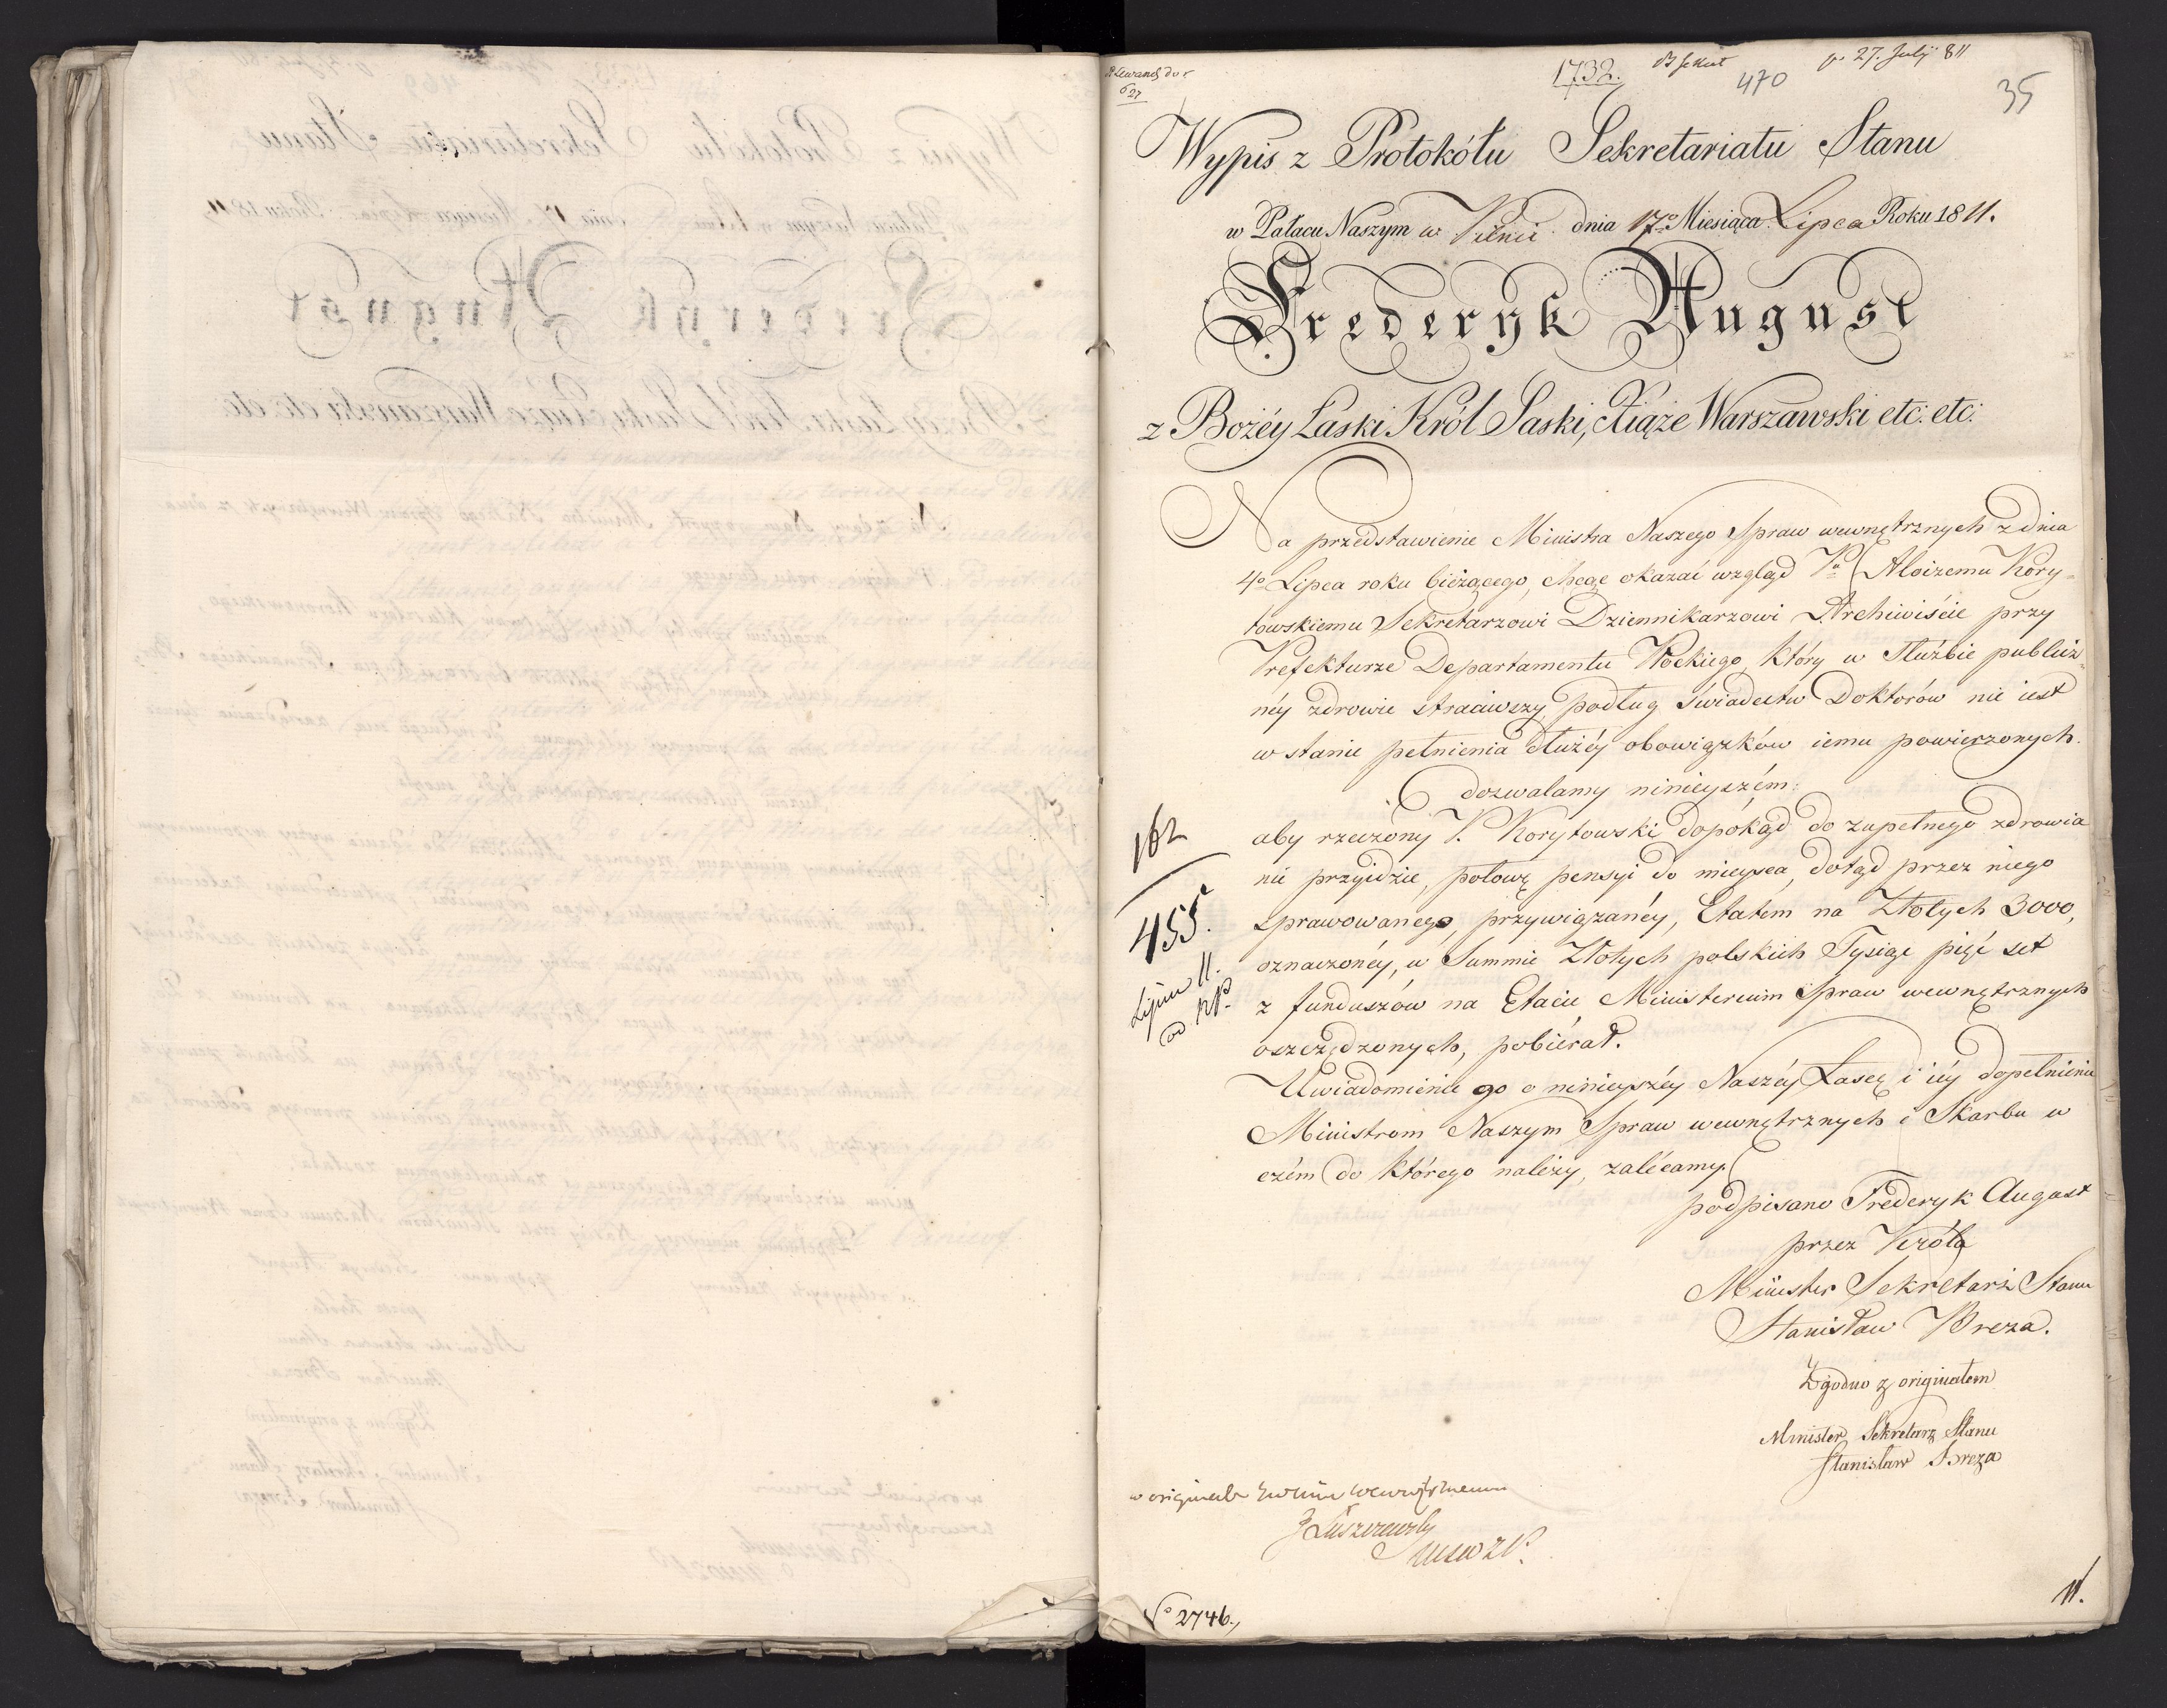 1732.
470
p. 27. July 811
35
Wypis z Protokółu Sekretariatu Stanu
w Pałacu Naszym w Pilnic dnia 17º Miesiąca Lipca Roku 1811.
Frederyk August
z Bożéy Łaski Król Saski, Xiąże Warszawski etc: etc:
Na przedstawienie Ministra Naszego Spraw wewnętrznych z dnia
4º Lipca roku bieżącego, chcąc okazać wzgląd Pu Aloizemu Kory-
towskiemu Sekretarzowi Dziennikarzowi Archiwiście przy
Prefekturze Departamentu Płockiego, który w Służbie publicz-
néy zdrowie straciwszy podług świadectw Doktorów nie iest
w stanie pełnienia dłużéy obowiązków iemu powierzonych.
dozwalamy ninieyszém:
aby rzeczony P. Korytowski dopókąd do zupełnego zdrowia
nie przyidzie, połowę pensyi do mieysca, dotąd przez niego
sprawowanego, przywiązanéy, Etatem na Złotych 3000,
oznaczonéy, w Summie Złotych polskich Tysiąc pięć set
z funduszów na Etacie Ministerium Spraw wewnętrznych
oszczędzonych, pobiérał.
Uwiadomienie go o ninieyszéy Naszéy Łasce i iéy dopełnienie
Ministrom Naszym Spraw wewnętrznych i Skarbu w
czém do którego należy, zalécamy.
162
455.
podpisano Frederyk August
przez Króla
Minister Sekretarz Stanu
Stanisław Breza.
Zgodno z originałem
Minister Sekretarz Stanu
Stanisław Breza
w originale
J Łuszczewski
Nº 2746.
11.